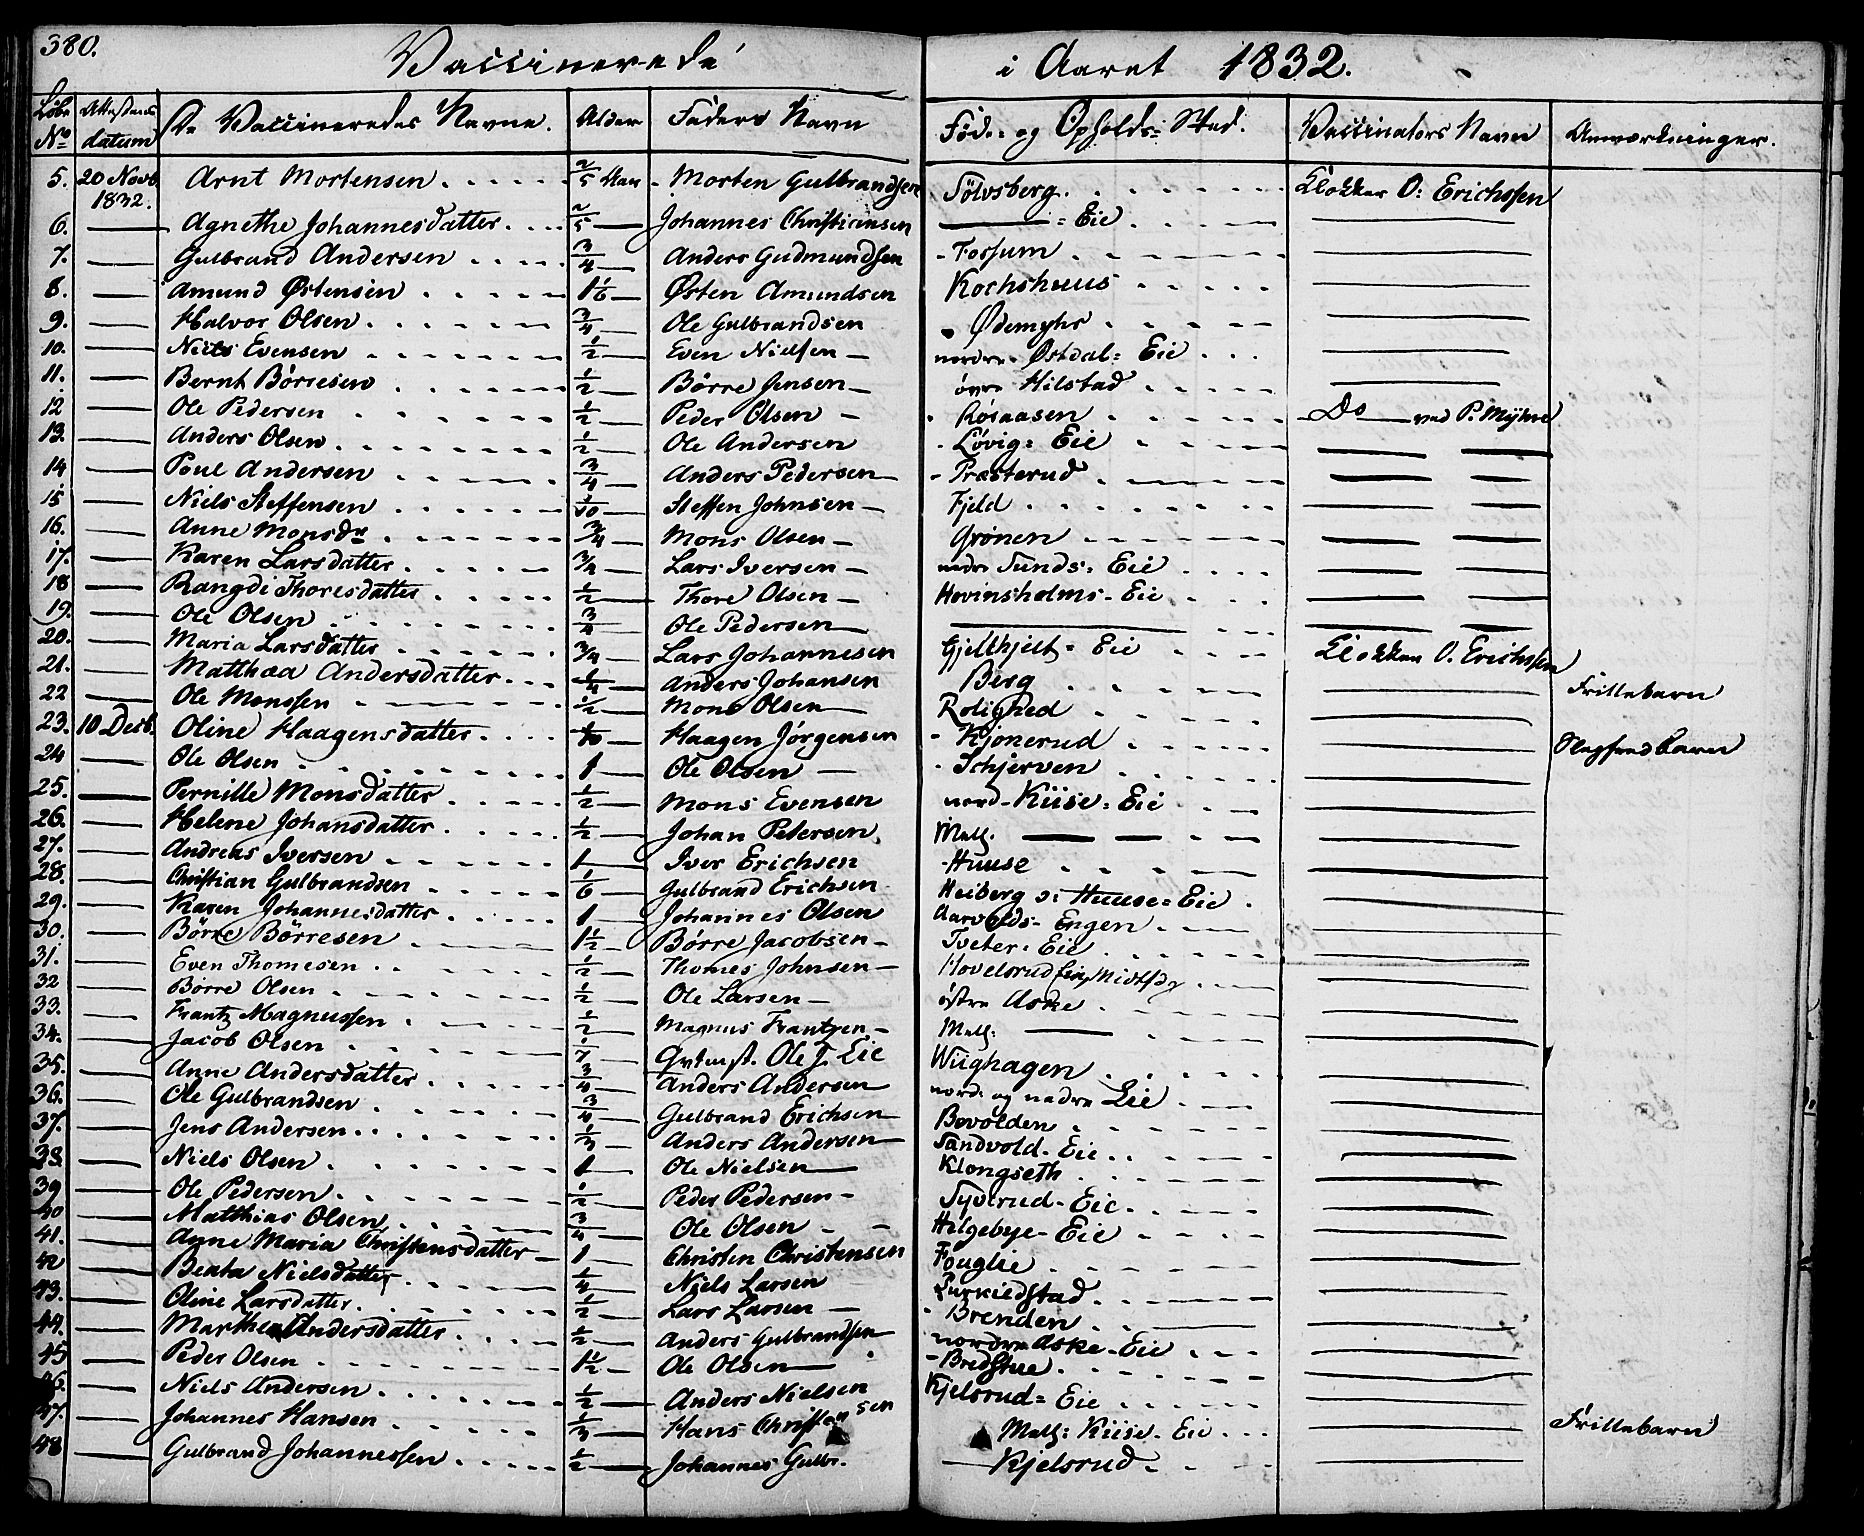 380.
Vaccinerede i Aaret 1832.
Løbe No Attestens datum De Vaccineredes Navne. Alder Faders Navn Føde- og Opholds-Sted. Vaccinators Navn Anmærkninger.
5. 20 Novb. 1832. Arnt Mortensen 2/5 Aar Morten Gulbrandsen Sølvsberg. Klokker O: Erichssen
6. — Agnethe Johannesdatter 2/5 — Johannes Christiansen — = Eie —
7. — Gulbrand Andersen 3/4 — Anders Gudmundsen Fossum —
8. — Amund Østensen 1 1/6 — Østen Amundsen Kochshuus —
9. — Halvor Olsen 3/4 — Ole Gulbrandsen Ødemyhr —
10. — Niels Evensen 1/2 — Even Nielsen — nordre Østdal= Eie —
11. — Bernt Børresen 1/2 — Børre Jensen — övre Hilstad —
12 — Ole Pedersen 1/2 — Peder Olsen — Røsaasen Do — ved P. Myhre
13. — Anders Olsen 1/2 — Ole Andersen Løvig= Eie — —
14 — Poul Andersen 3/4 — Anders Pedersen — Præsterud — —
15 — Niels Steffensen 1/10 — Steffen Johnsen — Fjeld — —
16. — Anne Monsdr 3/4 — Mons Olsen — Grønen — —
17. — Karen Larsdatter 3/4 — Lars Iversen — nedre Sunds= Eie — —
18 — Rangdi Thoresdatter 1/2 — Thore Olsen — Hovinsholms- Eie — —
19. — Ole Olsen 3/4 — Ole Pedersen — — — —
20. — Maria Larsdatter 3/4 — Lars Johannesen Gjelthjelt= Eie Klokker O. Erichssen
21. — Matthæa Andersdatter 1/4 — Anders Johansen Berg — Frillebarn
22 — Ole Monssen 1/2 — Mons Olsen — Rolighed —
23. 10 Decb. Oline Haagensdatter 1/10 — Haagen Jørgensen Kjonerud — Slegfredbarn
24 — Ole Olsen 1 — Ole Olsen — Schjerven —
25. — Pernille Monsdatter 1/2 — Mons Evensen nord- Kiise= Eie —
26. — Helene Johansdatter 1/2 — Johan Petersen Mell. — — —
27. — Andreas Iversen 1 — Iver Erichsen Huuse —
28. — Christian Gulbrandsen 1/6 — Gulbrand Erichsen Heiberg ɔ: Huuse= Eie —
29. — Karen Johannesdatter 1 — Johannes Olsen Aarvolds- Engen —
30. — Børre Børresen 1 1/2 — Børre Jacobsen — Tveter= Eie —
31. — Even Thomesen 1/2 — Thomes Johnsen — Hovelsrud —
32 — Børre Olsen 1/2 — Ole Larsen — östre Aske —
33. — Frantz Magnussen 1/2 — Magnus Frantzen — Mell: — —
34. — Jacob Olsen 1/7 — Ole J. Eie Wiighagen —
35. — Anne Andersdatter 3/4 — Anders Andersen nord. og nedre Eie —
36. — Ole Gulbrandsen 3/4 — Gulbrand Erichsen — Bovolden —
37. — Jens Andersen 1/3 — Anders Andersen — Sandvold- Eie —
38. — Niels Olsen 1 — Ole Nielsen — Klongseth —
39 — Ole Pedersen 1/2 — Peder Pedersen — Syverud- Eie —
40 — Matthias Olsen 3/4 — Ole Olsen — Helgebye- Eie —
41. — Anne Maria Christensdatter 1 — Christen Christensen Fouglie —
42 — Beata Nielsdatter 1/4 — Niels Larsen Purkiedstad —
43. — Oline Larsdatter 1/2 — Lars Larsen — Brenden —
44. — Marthea Andersdatter 1/2 — Anders Gulbrandsen nordre Aske- Eie —
45 — Peder Olsen 1 1/2 — Ole Olsen — Bredstue —
46. — Niels Andersen 1/2 — Anders Nielsen Kjelsrud= Eie —
47. — Johannes Hansen 1/3 — Hans Christensen Mell: Kiise- Eie — Frillebarn
48 — Gulbrand Johannessen 1/2 — Johannes Gulbr. Kjelsrud —